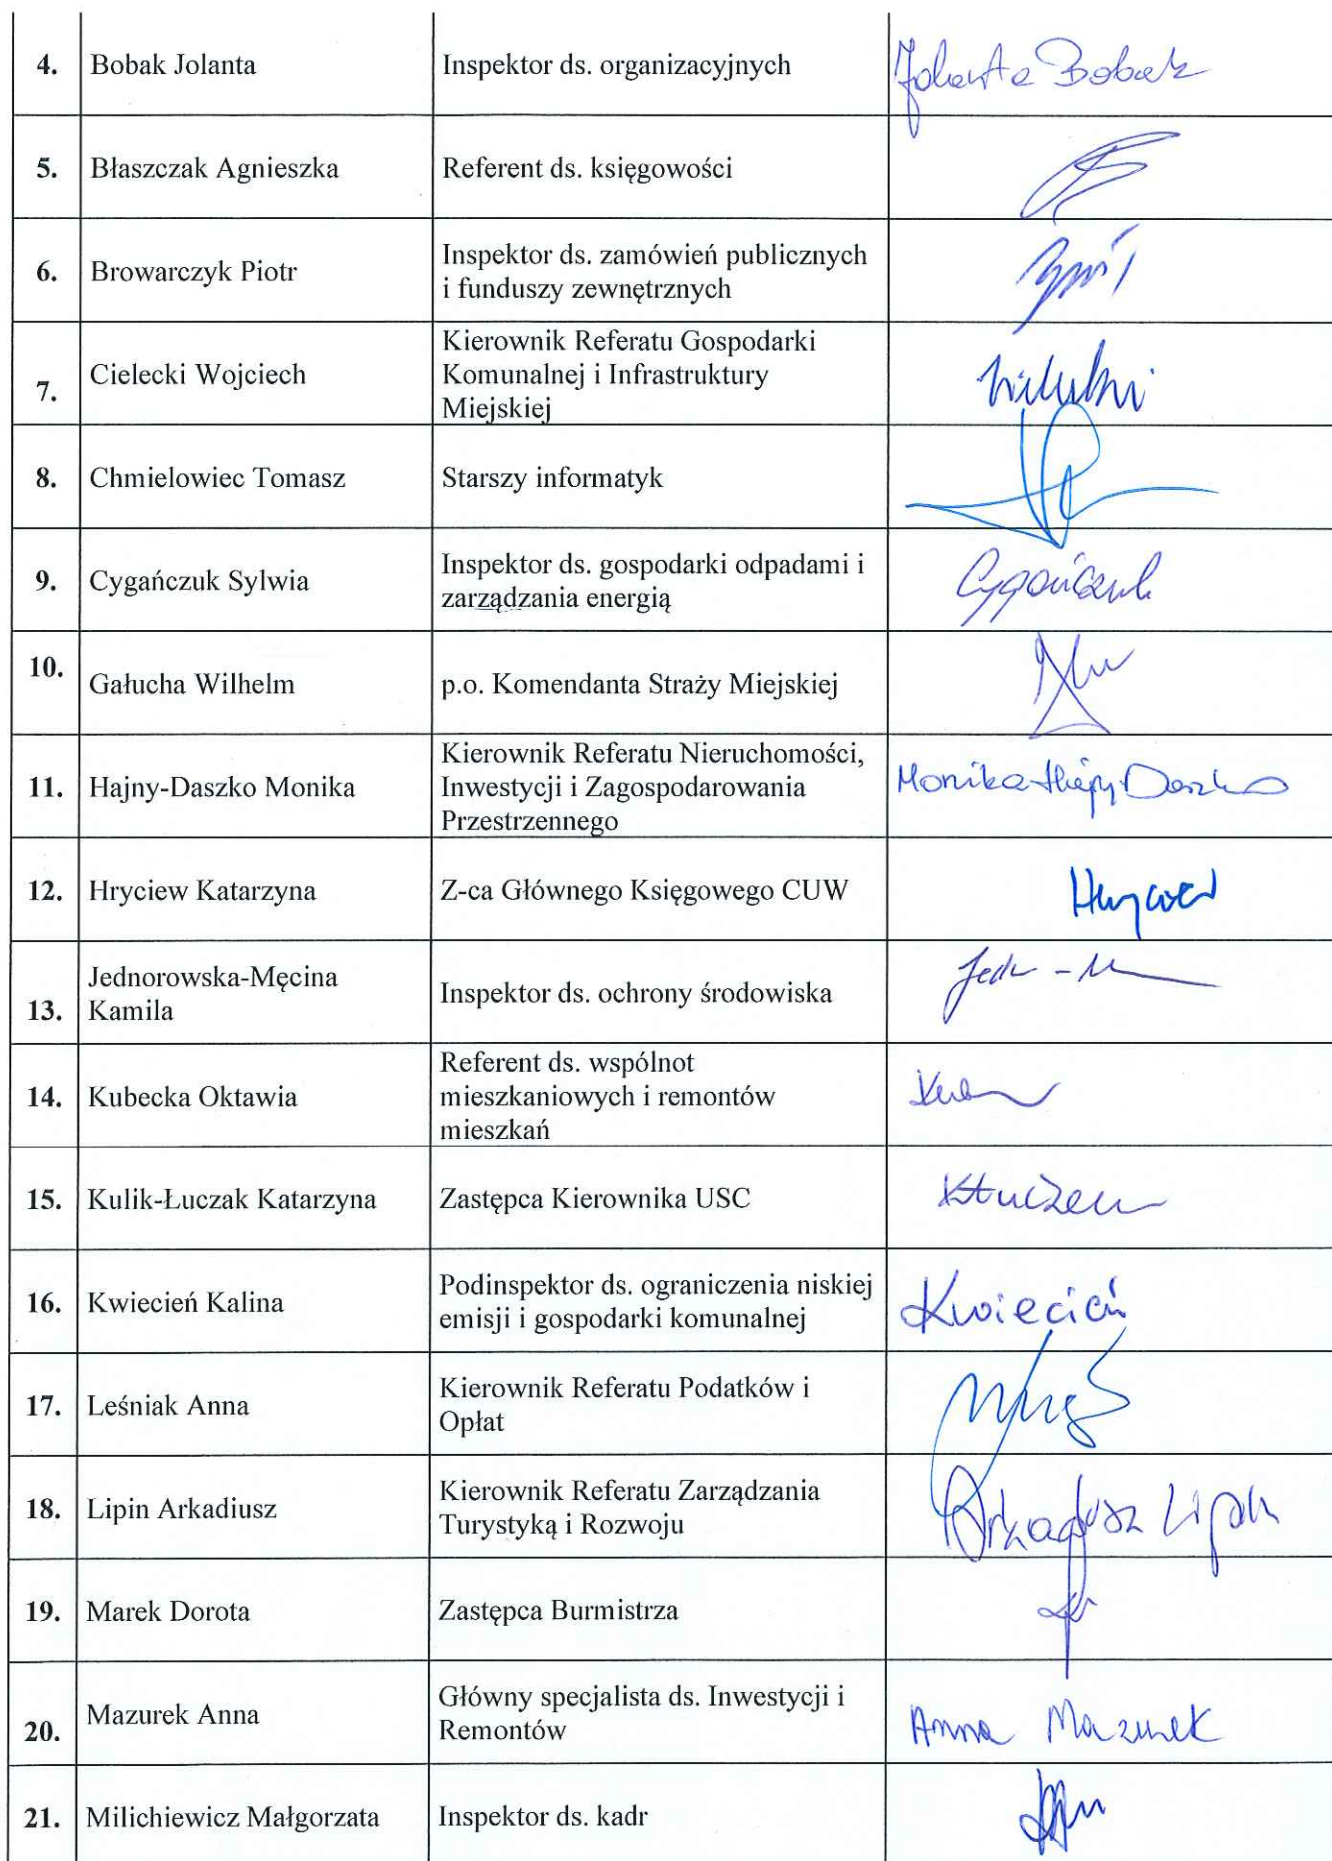 4. Bobak Jolanta Inspektor ds. organizacyjnych Jolanta Bobak
5. Błaszczak Agnieszka Referent ds. księgowości
6. Browarczyk Piotr Inspektor ds. zamówień publicznych
i funduszy zewnętrznych
7. Cielecki Wojciech Kierownik Referatu Gospodarki
Komunalnej i Infrastruktury
Miejskiej
8. Chmielowiec Tomasz Starszy informatyk
9. Cygańczuk Sylwia Inspektor ds. gospodarki odpadami i
zarządzania energią Cygańczuk
10. Gałucha Wilhelm p.o. Komendanta Straży Miejskiej
11. Hajny-Daszko Monika Kierownik Referatu Nieruchomości,
Inwestycji i Zagospodarowania
Przestrzennego Monika Hajny-Daszko
12. Hryciew Katarzyna Z-ca Głównego Księgowego CUW
13. Jednorowska-Męcina
Kamila Inspektor ds. ochrony środowiska
14. Kubecka Oktawia Referent ds. wspólnot
mieszkaniowych i remontów
mieszkań
15. Kulik-Łuczak Katarzyna Zastępca Kierownika USC
16. Kwiecień Kalina Podinspektor ds. ograniczenia niskiej
emisji i gospodarki komunalnej Kwiecień
17. Leśniak Anna Kierownik Referatu Podatków i
Opłat
18. Lipin Arkadiusz Kierownik Referatu Zarządzania
Turystyką i Rozwoju Arkadiusz Lipin
19. Marek Dorota Zastępca Burmistrza
20. Mazurek Anna Główny specjalista ds. Inwestycji i
Remontów Anna Mazurek
21. Milichiewicz Małgorzata Inspektor ds. kadr